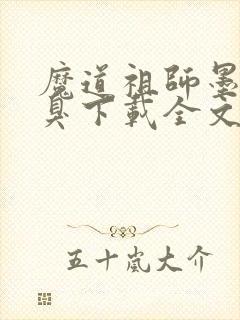 魔道祖師墨
臭下載全文
五十嵐大介